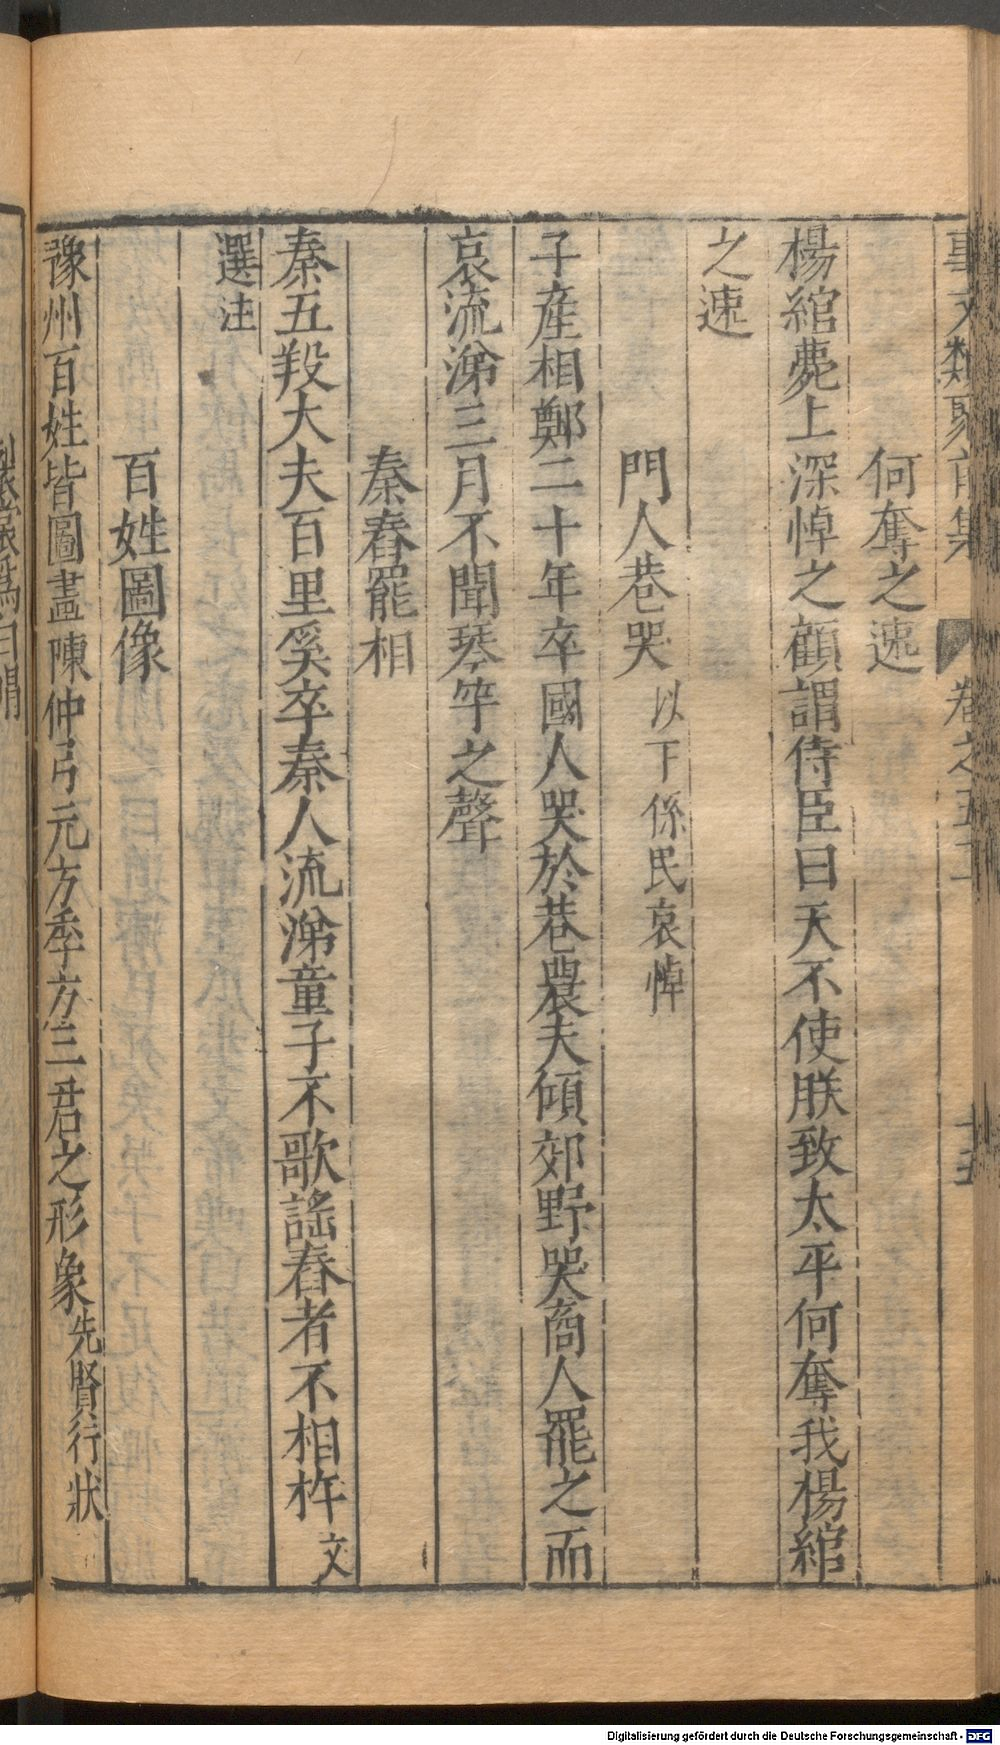 事文類聚前集 卷之五二 十五
何奪之速
楊綰薨上深悼之顧謂侍臣曰天不使朕致太平何奪我楊綰
之速
門人巷哭 以下係民哀悼
子產相鄭二十年卒國人哭於巷農夫傾郊野哭商人罷之而
哀流涕三月不聞琴竽之聲
秦舂罷相
秦五羖大夫百里奚卒秦人流涕童子不歌謠舂者不相杵 文
選注
百姓圖像
豫州百姓皆圖畫陳仲弓元方季方三君之形象 先賢行狀
Digitalisierung gefördert durch die Deutsche Forschungsgemeinschaft - DFG